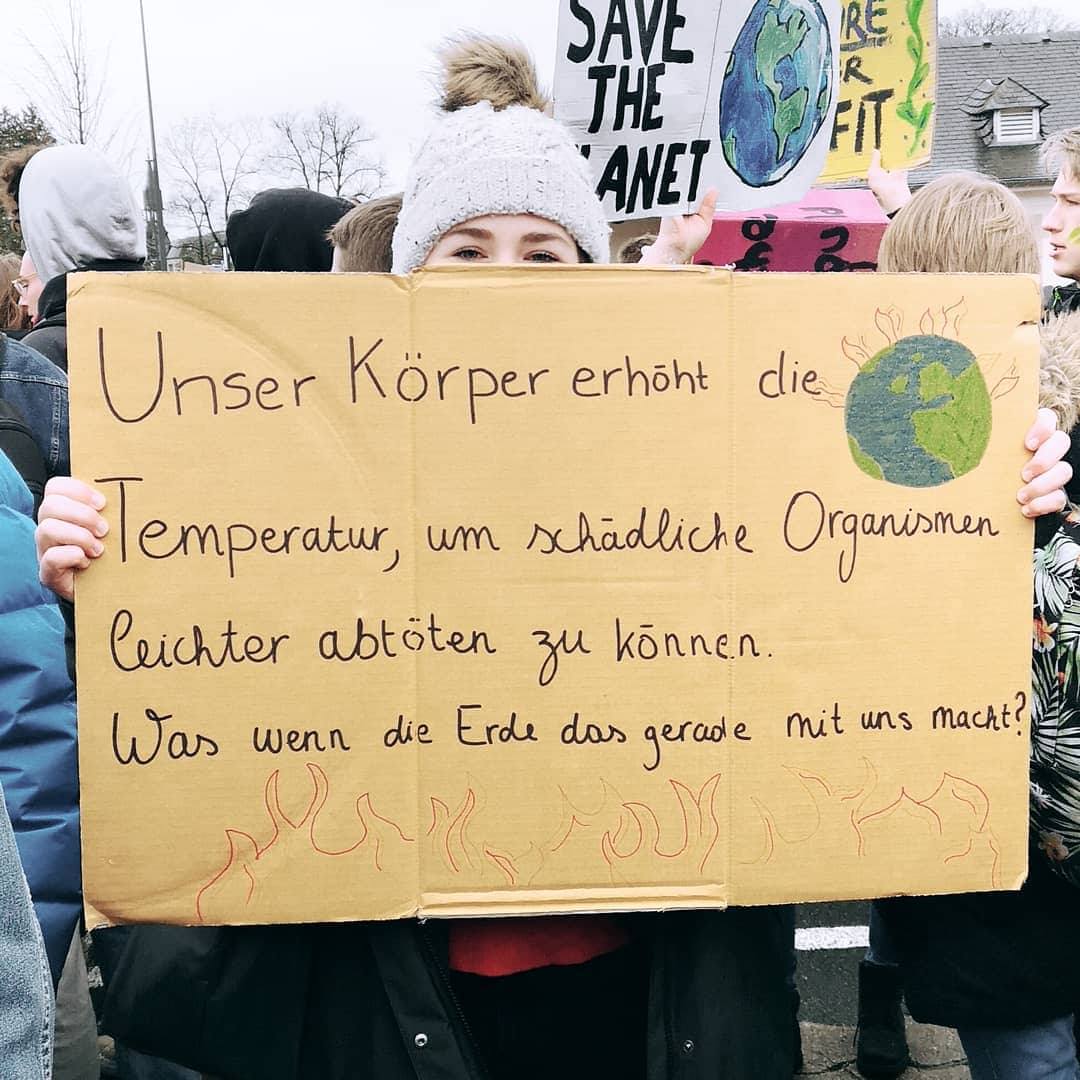 SAVE
THE
ANET
RE
R
FIT
Unser Körper erhöht die
Temperatur, um schädliche Organismen
leichter abtöten zu können.
Was wenn die Erde das gerade mit uns macht?